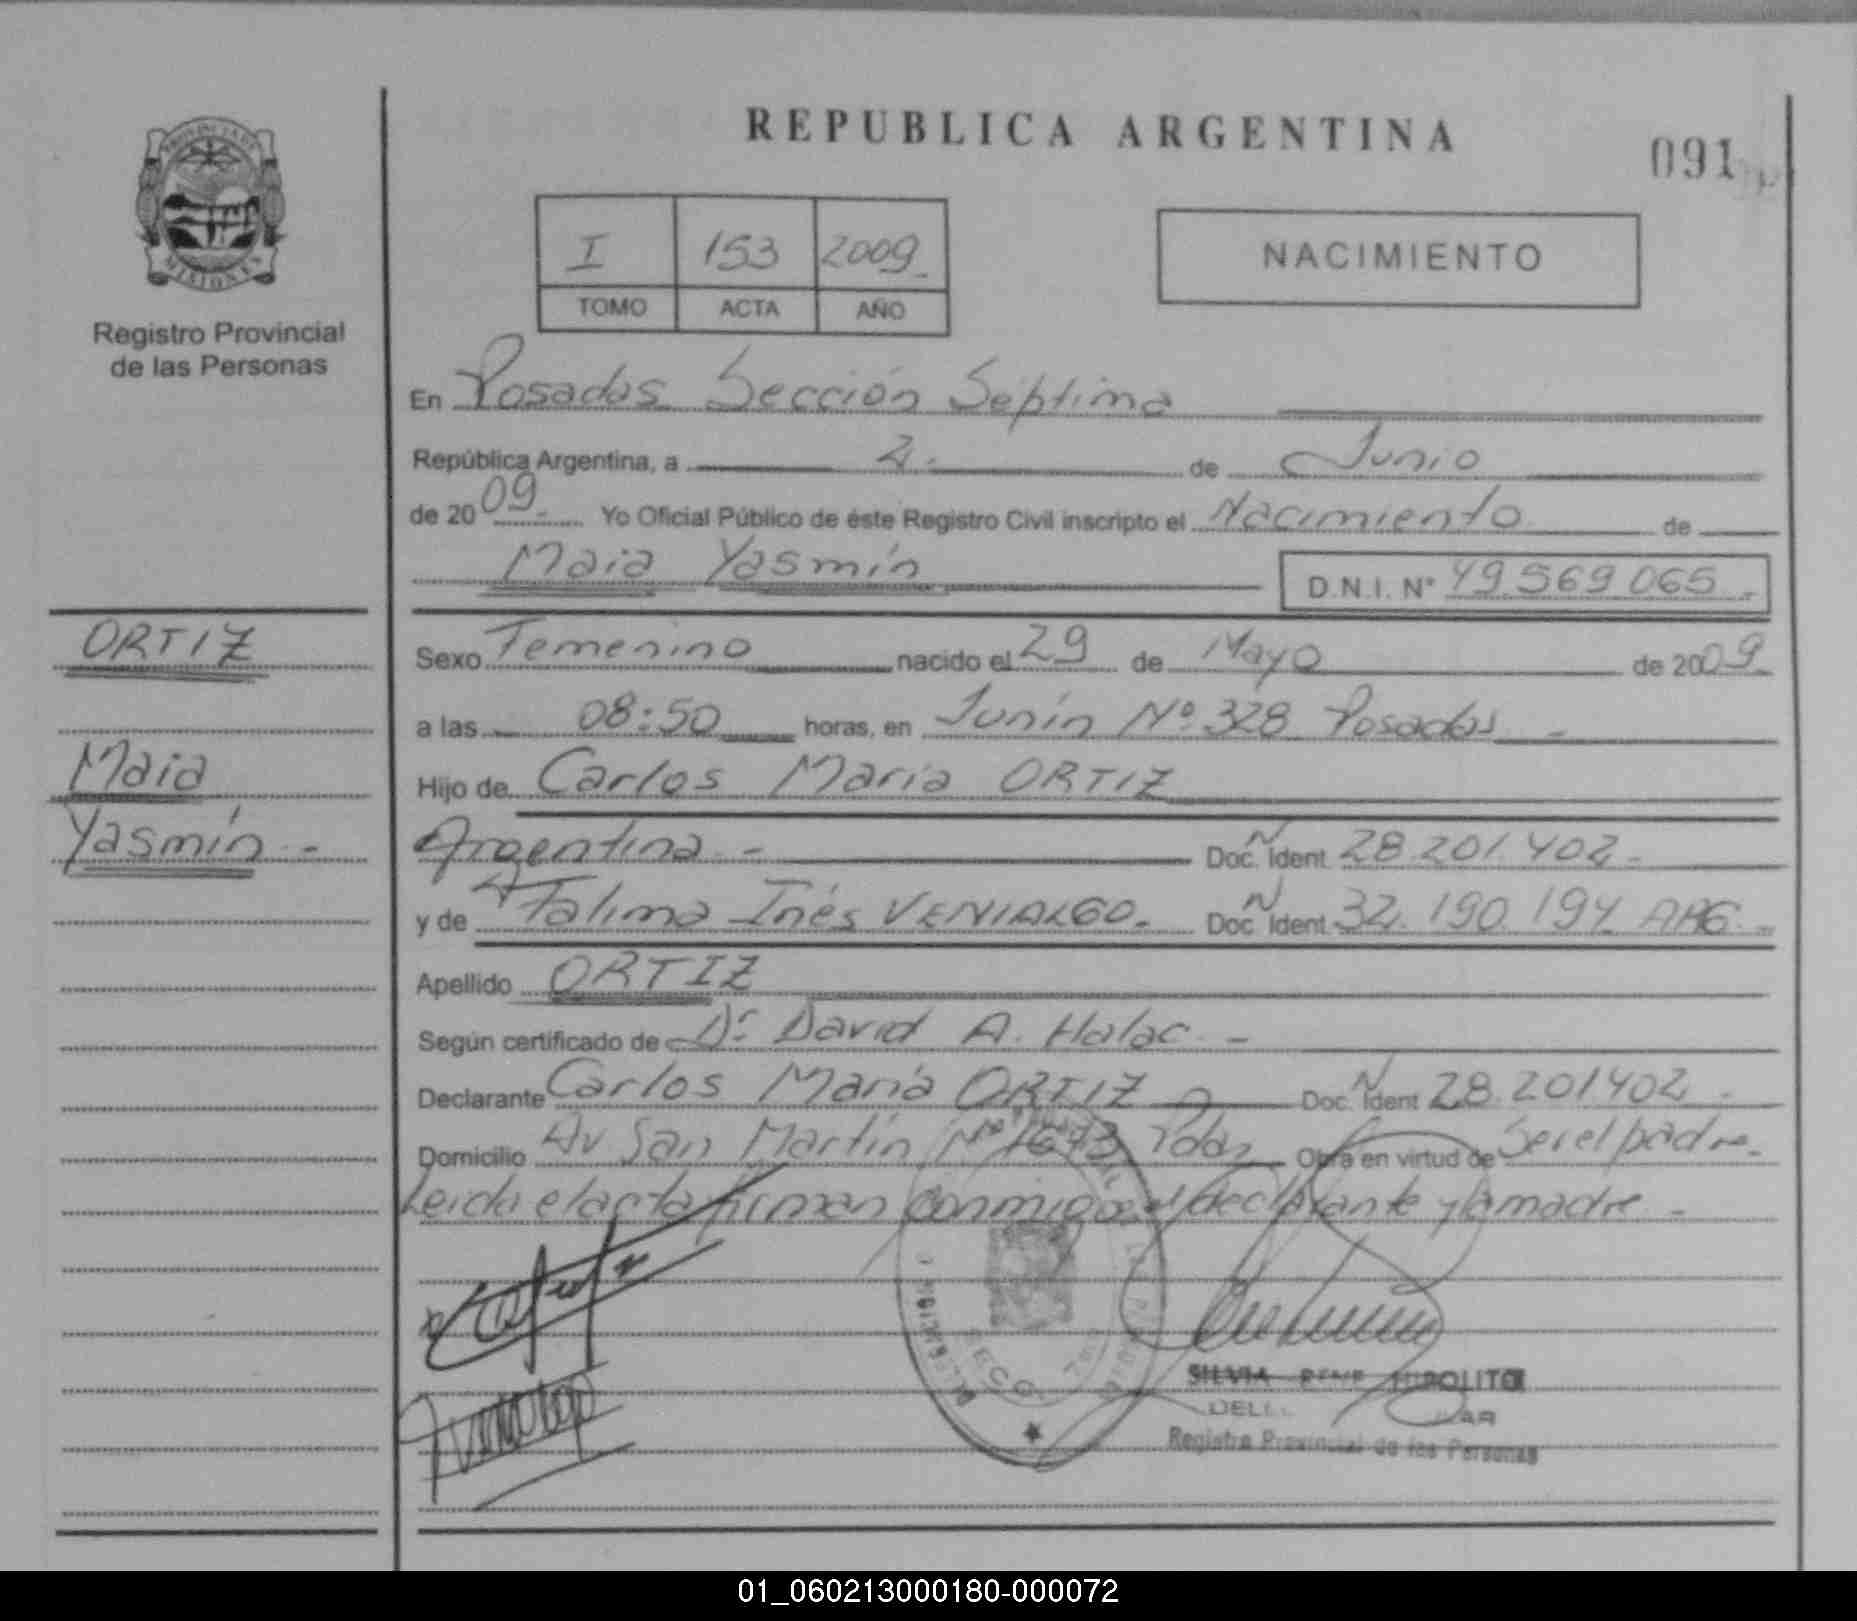 REPUBLICA ARGENTINA
091
PROVINCIA DE
MISIONES
Registro Provincial
de las Personas
I 153 2009
TOMO ACTA AÑO
NACIMIENTO
En Posadas Sección Séptima
República Argentina, a 2 de Junio
de 2009 Yo Oficial Público de éste Registro Civil inscripto el Nacimiento de
Maia Yasmín D.N.I. N° 49.569.065
ORTIZ
Maia
Yasmín
Sexo Femenino nacido el 29 de Mayo de 2009
a las 08:50 horas, en Junín Nº 328 Posadas
Hijo de Carlos María ORTIZ
Argentina Doc. N Ident. 28.201.402
y de Fatima Inés VENIALGO Doc. N Ident. 32.190.194 ARG.
Apellido ORTIZ
Según certificado de Dr. David A. Halac
Declarante Carlos María ORTIZ Doc. N Ident 28.201402
Domicilio Av San Martín Nº Pdas Obra en virtud de Ser el padre
Leida el acta firman conmigo el declarante y la madre
SILVIA HIPOLITO
Registro Provincial de las Personas
01_060213000180-000072